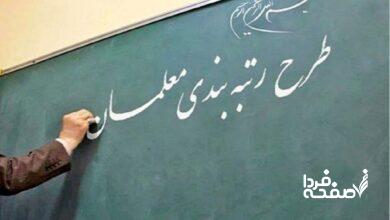 بسم الله الرحمن الرحیم
طرح رتبه بندی معلمان
صفحه فردا